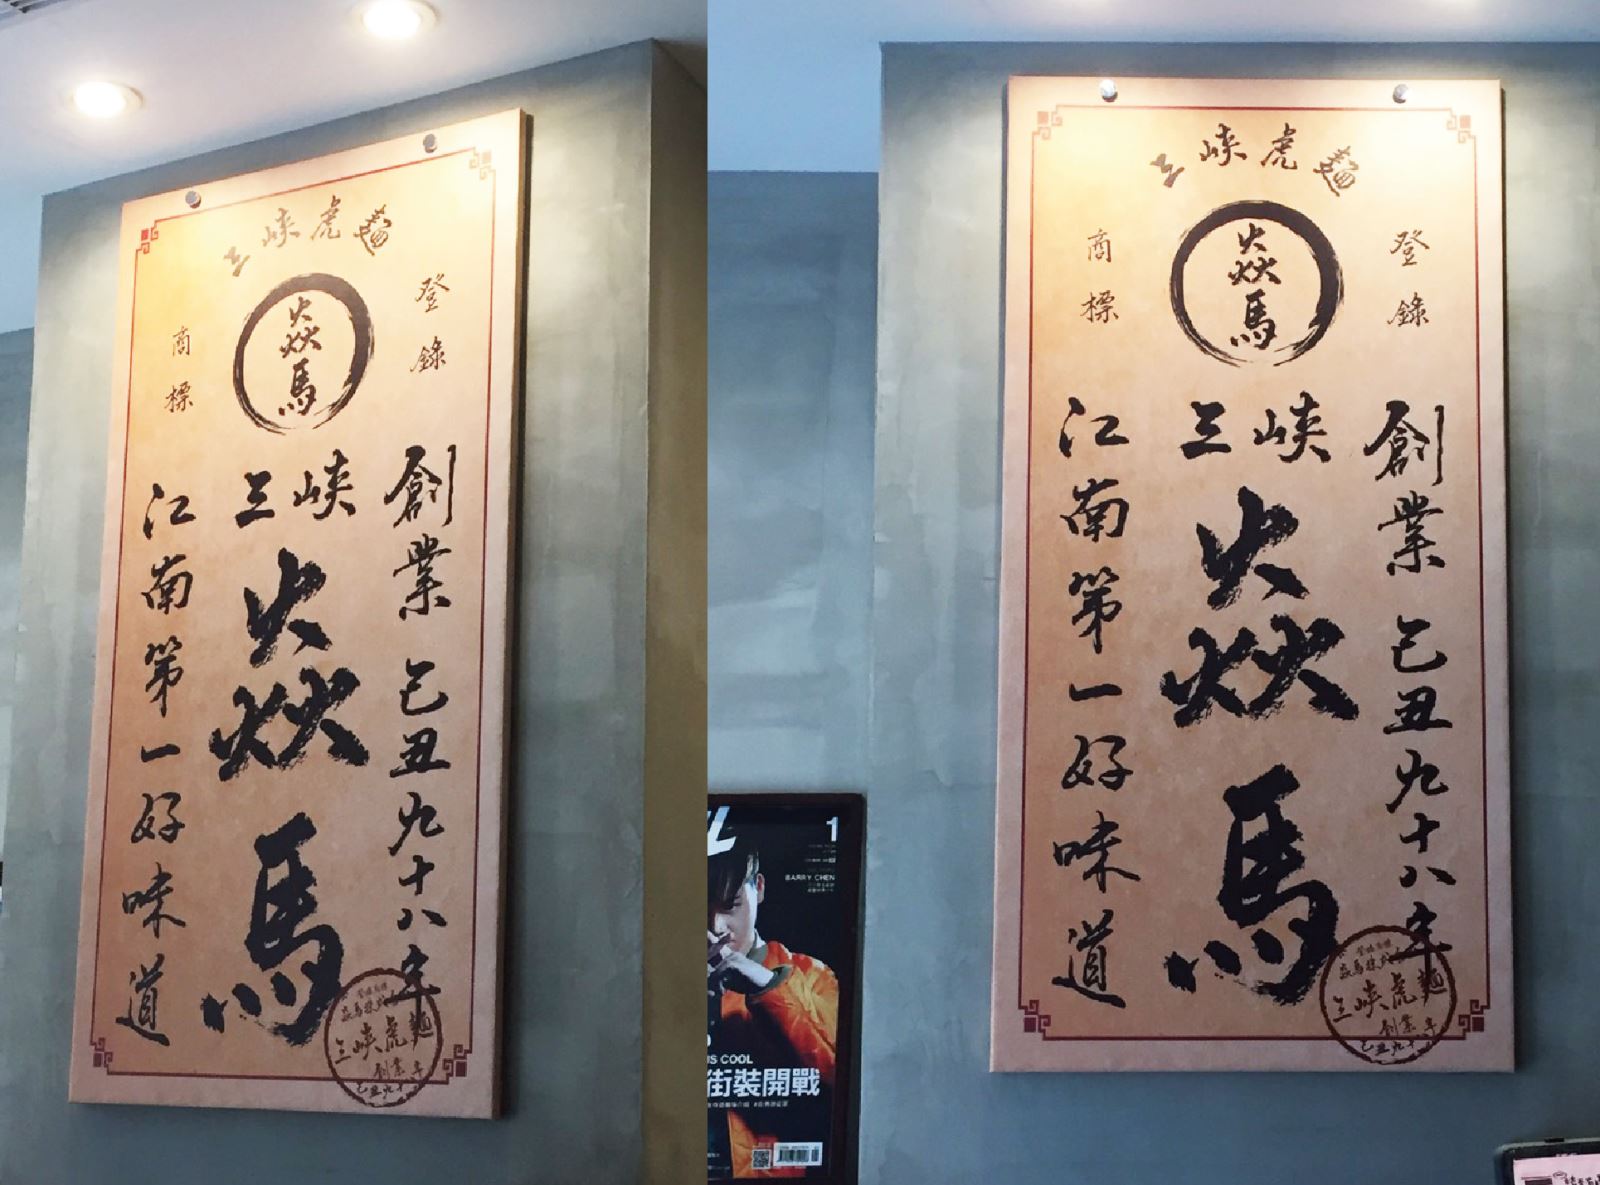 三峽虎麵
登錄
商標
焱馬
三峽
焱馬
創業己丑九十八年
江南第一好味道
三峽虎麵
創業
三峽虎麵
登錄
商標
焱馬
三峽
焱馬
創業己丑九十八年
江南第一好味道
三峽虎麵
創業
1
BARRY CHEN
IS COOL
街裝開戰